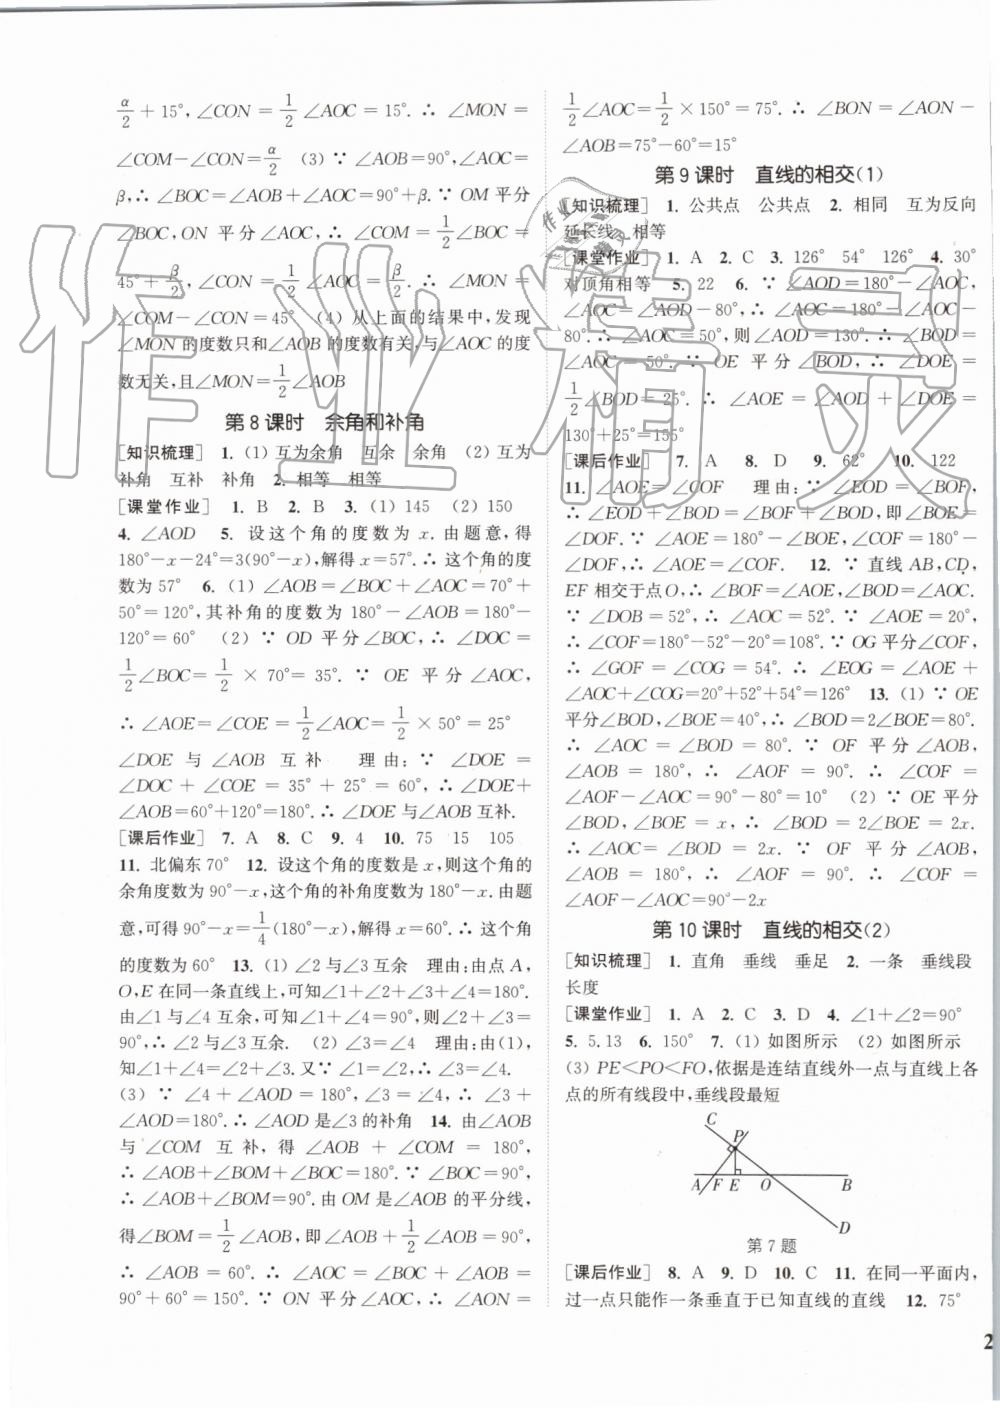 α/2 + 15°,∠CON = 1/2 ∠AOC = 15°.∴ ∠MON =
∠COM−∠CON=α/2 (3) ∵ ∠AOB=90°,∠AOC=
β,∴ ∠BOC=∠AOB+∠AOC=90°+β.∵ OM 平分
∠BOC,ON 平分∠AOC,∴ ∠COM = 1/2 ∠BOC =
45°+ β/2,∠CON = 1/2 ∠AOC = β/2.∴ ∠MON =
∠COM−∠CON=45° (4) 从上面的结果中,发现
∠MON 的度数只和∠AOB 的度数有关,与∠AOC 的度
数无关,且∠MON=1/2∠AOB
第 8 课时 余角和补角
[知识梳理] 1. (1) 互为余角 互余 余角 (2) 互为
补角 互补 补角 2. 相等 相等
[课堂作业] 1. B 2. B 3. (1) 145 (2) 150
4. ∠AOD 5. 设这个角的度数为 x. 由题意,得
180°−x−24°=3(90°−x),解得 x=57°.∴ 这个角的度
数为 57° 6. (1) ∠AOB=∠BOC+∠AOC=70°+
50°=120°,其补角的度数为 180°−∠AOB=180°−
120°=60° (2) ∵ OD 平分∠BOC,∴ ∠DOC=
1/2∠BOC = 1/2 × 70° = 35°. ∵ OE 平分 ∠AOC,
∴ ∠AOE=∠COE=1/2∠AOC=1/2×50°=25°
∠DOE 与 ∠AOB 互补 理由: ∵ ∠DOE =
∠DOC + ∠COE = 35° + 25° = 60°,∴ ∠DOE+
∠AOB=60°+120°=180°.∴ ∠DOE 与∠AOB 互补.
[课后作业] 7. A 8. C 9. 4 10. 75 15 105
11. 北偏东 70° 12. 设这个角的度数是 x,则这个角的
余角度数为 90°−x,这个角的补角度数为 180°−x. 由题
意,可得 90°−x=1/4(180°−x),解得 x=60°.∴ 这个角
的度数为 60° 13. (1) ∠2 与∠3 互余 理由:由点 A,
O,E 在同一条直线上,可知∠1+∠2+∠3+∠4=180°.
由∠1 与∠4 互余,可知∠1+∠4=90°,则∠2+∠3=
90°.∴ ∠2 与∠3 互余. (2) ∠3=∠4 理由:由(1),
知∠1+∠4=∠2+∠3. 又∵ ∠1=∠2,∴ ∠3=∠4.
(3) ∵ ∠4 + ∠AOD = 180°,∠3 = ∠4,∴ ∠3 +
∠AOD=180°.∴ ∠AOD 是∠3 的补角 14. 由∠AOB
与∠COM 互补,得 ∠AOB + ∠COM = 180°.
∴ ∠AOB+∠BOM+∠BOC=180°.∵ ∠BOC=90°,
∴ ∠AOB+∠BOM=90°. 由 OM 是∠AOB 的平分线,
得∠BOM=1/2∠AOB,即∠AOB+1/2∠AOB=90°,
∴ ∠AOB = 60°. ∴ ∠AOC = ∠BOC + ∠AOB =
90°+60°=150°. ∵ ON 平分∠AOC,∴ ∠AON =
1/2∠AOC=1/2×150°=75°. ∴ ∠BON=∠AON−
∠AOB=75°−60°=15°
第 9 课时 直线的相交(1)
[知识梳理] 1. 公共点 公共点 2. 相同 互为反向
延长线 相等
[课堂作业] 1. A 2. C 3. 126° 54° 126° 4. 30°
对顶角相等 5. 22 6. ∵ ∠AOD=180°−∠AOC,
∠AOC=∠AOD−80°,∴ ∠AOC=180°−∠AOC−
80°.∴ ∠AOC=50°,则∠AOD=130°.∴ ∠BOD=
∠AOC = 50°. ∵ OE 平分∠BOD,∴ ∠DOE =
1/2∠BOD=25°. ∴ ∠AOE = ∠AOD + ∠DOE =
130°+25°=155°
[课后作业] 7. A 8. D 9. 62° 10. 122
11. ∠AOE=∠COF 理由:∵ ∠EOD=∠BOF,
∴ ∠EOD+∠BOD=∠BOF+∠BOD,即∠BOE=
∠DOF.∵ ∠AOE=180°−∠BOE,∠COF=180°−
∠DOF,∴ ∠AOE=∠COF. 12. ∵ 直线 AB,CD,
EF 相交于点 O,∴ ∠BOF=∠AOE,∠BOD=∠AOC.
∵ ∠DOB = 52°,∴ ∠AOC = 52°.∵ ∠AOE=20°,
∴ ∠COF=180°−52°−20°=108°.∵ OG 平分∠COF,
∴ ∠GOF = ∠COG = 54°.∴ ∠EOG = ∠AOE +
∠AOC+∠COG=20°+52°+54°=126° 13. (1) ∵ OE
平分∠BOD,∠BOE=40°,∴ ∠BOD=2∠BOE=80°.
∴ ∠AOC = ∠BOD = 80°. ∵ OF 平分∠AOB,
∠AOB = 180°,∴ ∠AOF = 90°. ∴ ∠COF =
∠AOF−∠AOC=90°−80°=10° (2) ∵ OE 平分
∠BOD,∠BOE = x,∴ ∠BOD = 2∠BOE = 2x.
∴ ∠AOC = ∠BOD = 2x. ∵ OF 平分 ∠AOB,
∠AOB = 180°,∴ ∠AOF = 90°. ∴ ∠COF =
∠AOF−∠AOC=90°−2x
第 10 课时 直线的相交(2)
[知识梳理] 1. 直角 垂线 垂足 2. 一条 垂线段
长度
[课堂作业] 1. A 2. C 3. D 4. ∠1+∠2=90°
5. 5,13 6. 150° 7. (1) 如图所示 (2) 如图所示
(3) PE<PO<FO,依据是连结直线外一点与直线上各
点的所有线段中,垂线段最短
C
P
A F E O B
D
第 7 题
[课后作业] 8. A 9. D 10. C 11. 在同一平面内,
过一点只能作一条垂直于已知直线的直线 12. 75°
2
作业精灵